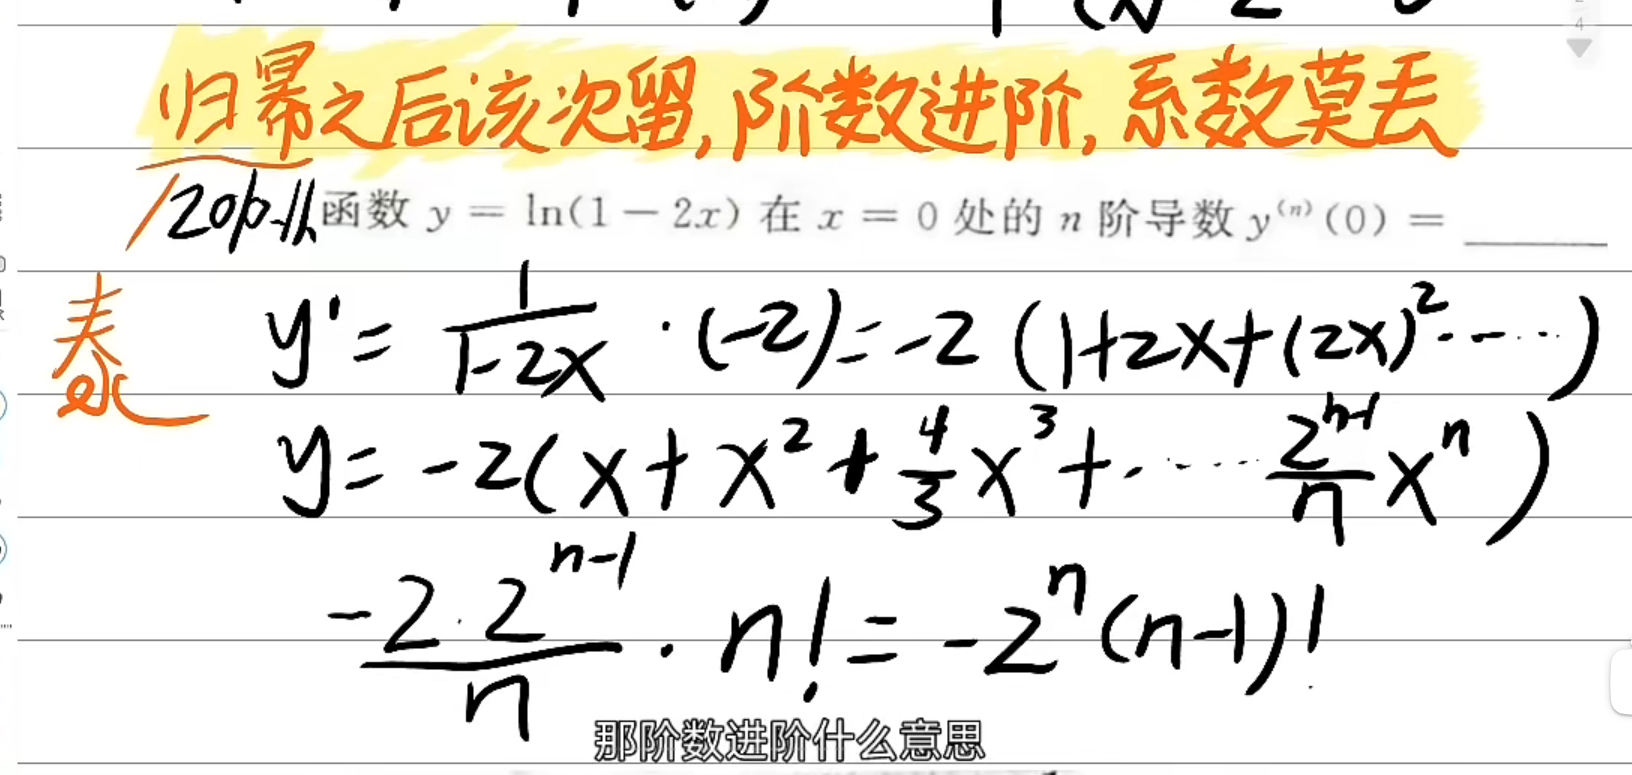 归幂之后该次留,阶数进阶,系数莫丢
2010-11 函数 y = ln(1 − 2x) 在 x = 0 处的 n 阶导数 y⁽ⁿ⁾(0) = ______
泰 y' = 1/(1-2x) · (-2) = -2 (1+2x+(2x)²-----)
y = -2(x + x² + 4/3 x³ + ······ 2ⁿ⁻¹/n xⁿ)
-2·2ⁿ⁻¹/n · n! = -2ⁿ(n-1)!
那阶数进阶什么意思